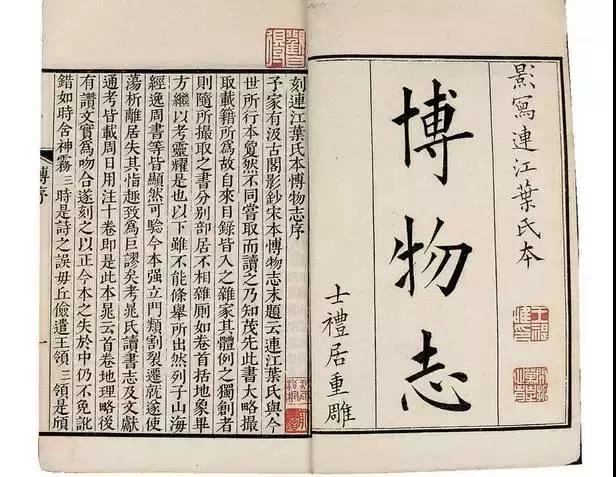 影寫連江葉氏本
博物志
士禮居重雕
刻連江葉氏本博物志序
予家有汲古閣影鈔宋本博物志末題云連江葉氏與今
世所行本夐然不同嘗取而讀之乃知茂先此書大略撮
取載籍所爲故自來目錄皆入之雜家其體例之獨創者
則隨所撮取之書分別部居不相雜厠如卷首括地象畢
方繼以考靈耀是也以下雖不能條舉所出然列子山海
經逸周書等皆顯然可驗今本強立門類割裂遷就遂使
蕩析離居失其指趣致爲巨謬矣考晁氏讀書志及文獻
通考皆載周日用注十卷即是此本晁云首卷地理略後
有讚文實爲吻合遂刻之以正今本之失於中仍不免訛
錯如時含神霧三時是詩之誤毋丘儉遣王領三領是頎
博序
一